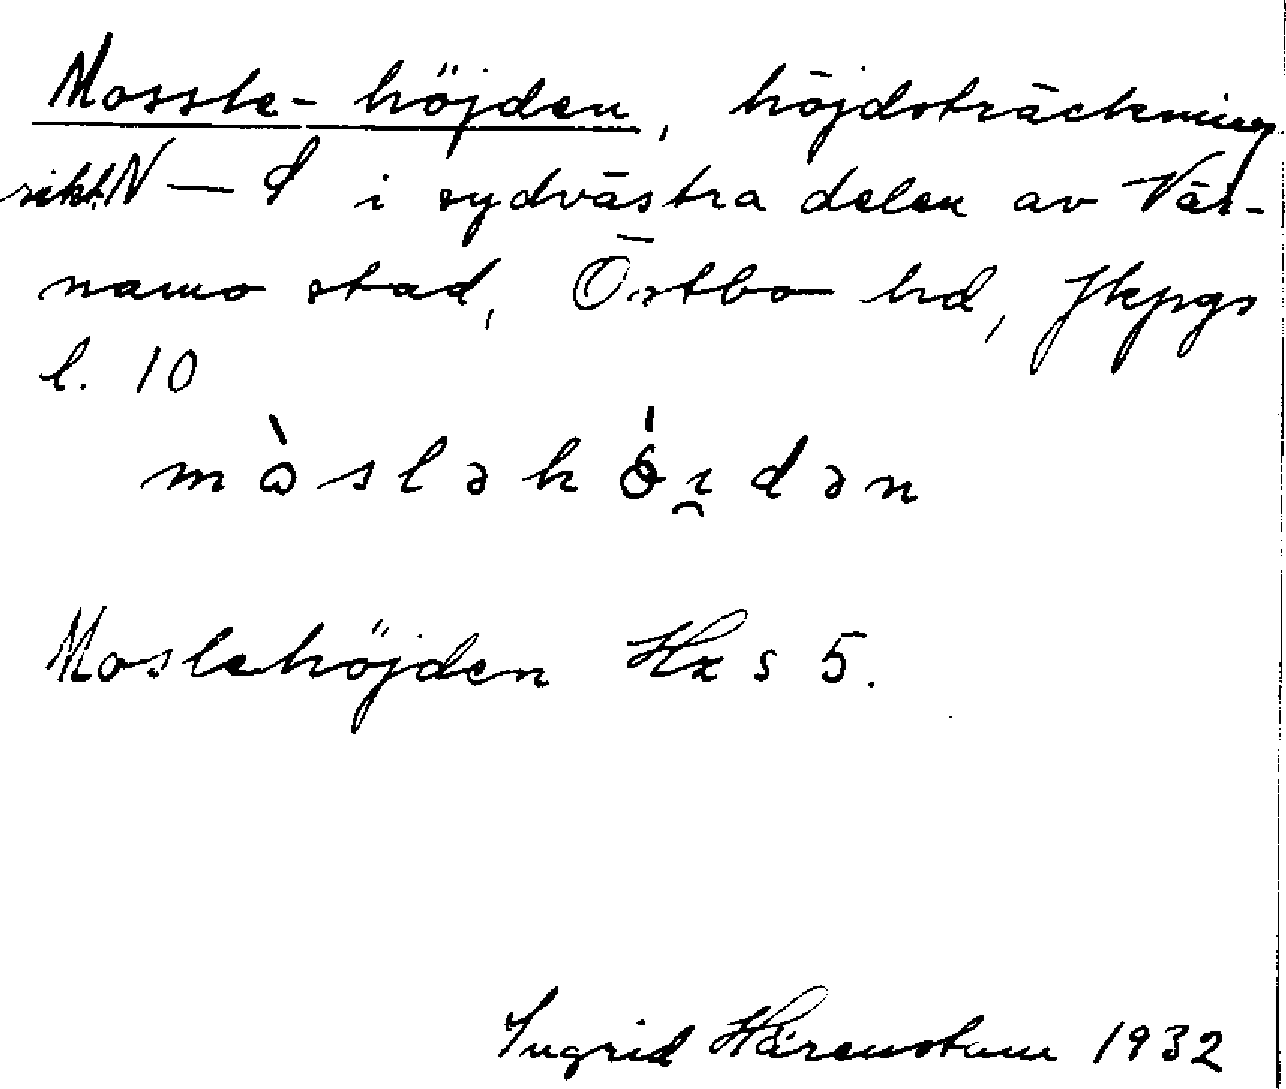 Mossle-höjden, höjdsträckning
rikt. N — S i sydvästra delen av Vär-
namo stad, Östbo hd, Jkpgs
l. 10
mòsləhǿi̯dən
Moslehöjden Hx s 5.
Ingrid Härenstam 1932